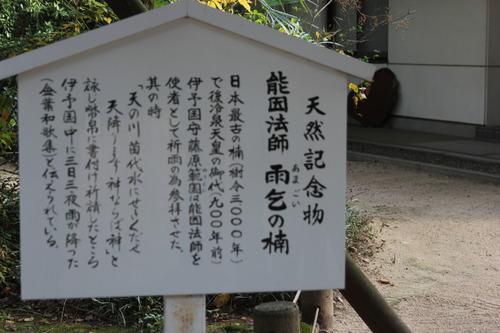 天然記念物
能因法師 雨乞の楠
あまごい
日本最古の楠樹令三〇〇〇年)
で後冷泉天皇の御代九〇〇年前)
伊予国守藤原範国は能因法師を
使者として祈雨の為参拝させた。
其の時
「天の川 苗代水にせきくだせ
天降ります神ならば神」と
詠し幣帛に書付け祈請したところ
伊予国中に三日三夜雨が降った
(金葉和歌集と伝えられている。